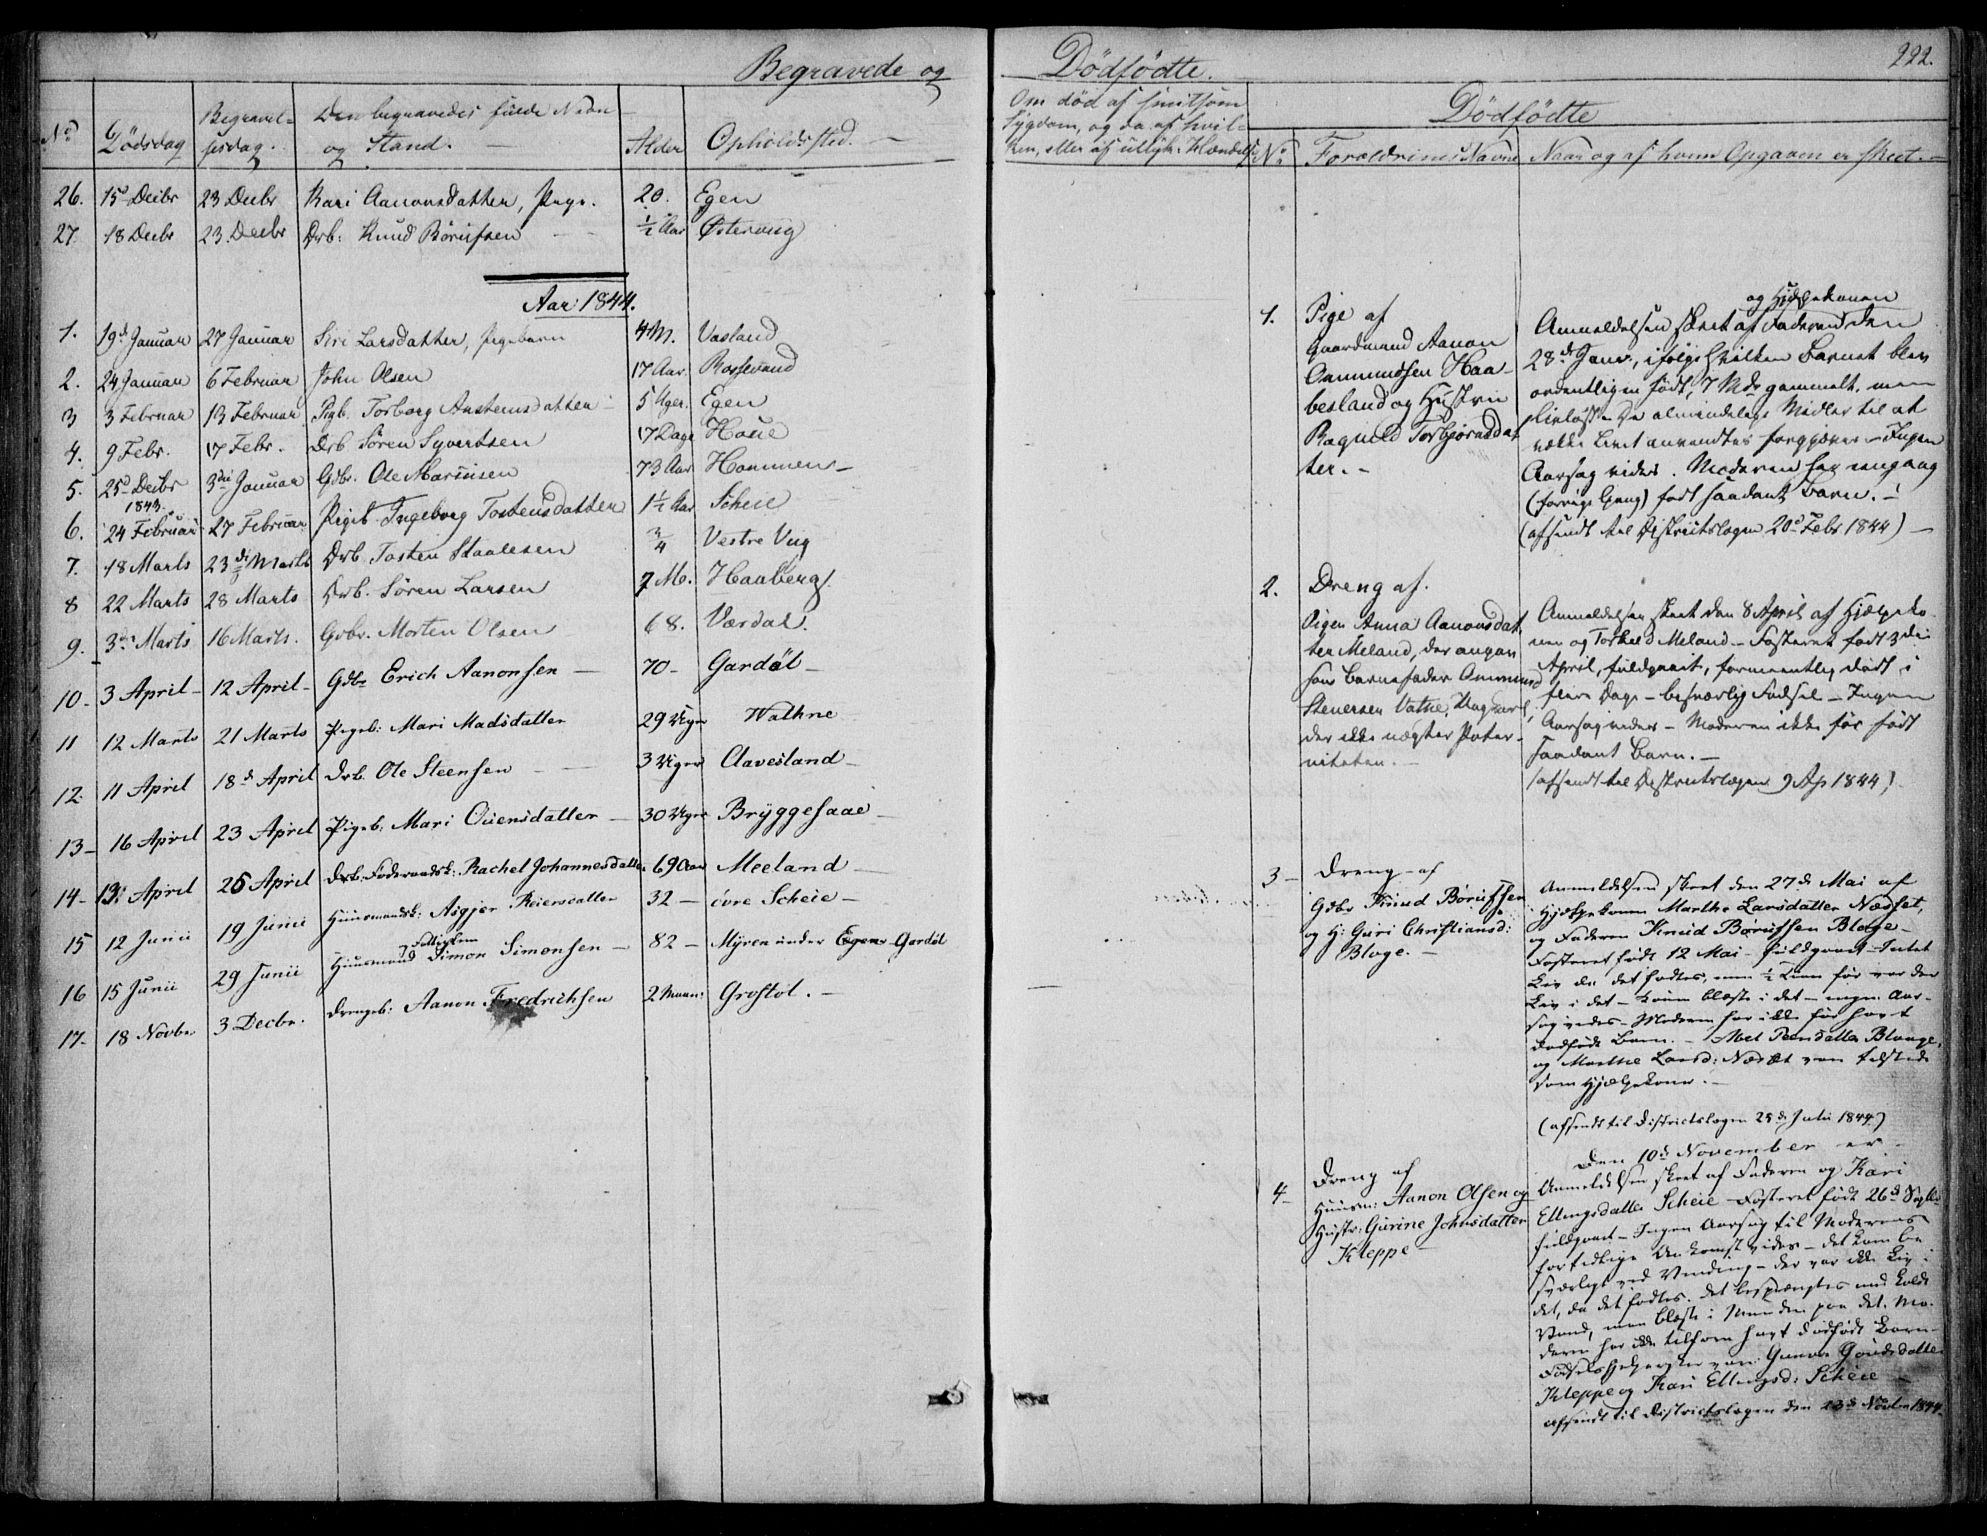 Begravede og Dödfödte.
222.
No Dödsdag Begravelsesdag. Den begravedes fulde Navn og Stand. Alder Opholdssted.
Om död af smitsom Sygdom, og da af hvilken, eller af ulykk. Hændelse
Dödfödte
No Forældrenes Navne Naar og af hvem Opgaven er skeet.
26. 15d Decbr 23 Decbr Kari Aanonsdatter, Pige. 20. Egen
27. 18 Decbr 23. Decbr Drb: Knud Börufsen ½ Aar Östervug
Aar 1844.
1. 19d Januar 27 Januar Siri Larsdatter, Pigebarn 4 M. Vasland
2. 24 Januar 6 Februar John Olsen 17 Aar Rossevand
3 3 Februar 13 Februar Pigb. Torborg Anstensdatter 5 Uger. Egen
4. 9 Febr. 17 Febr. Drb Sören Syvertsen 17 Dage Houe
5. 25d Decbr 1843. 3die Januar Gdbr. Ole Mariusen 73 Aar Hommen
6. 24 Februar 27 Februar Pigeb. Ingeborg Tostensdatter 1½ Aar Scheie
7. 18 Marts 23de Marts Drb. Tosten Staalesen ¾ Vestre Vug
8 22 Marts 28 Marts Drb. Sören Larsen 7 M. Haaberg
9. 3die Marts 16 Marts. Gdbr. Morten Olsen 68. Værdal.
10- 3 April- 12 April- Gdbr Erich Aanonsen 70- Gardöl
11 12 Marts 21 Marts Pigeb: Mari Madsdatter 29 Uger Wathne
12. 11 April 18d April Drb. Ole Steensen 3 Uger Clavesland
13- 16 April 23 April Pigeb: Mari Ouensdatter 30 Uger Bryggesaae
14- 13. April 25 April Föderaadsk: Rachel Johannesdatter 69 Aar Meeland
15 12 Junii 19 Junii Huusmandsk: Asgjer Reiersdatter 32 - övre Scheie
16 15 Junii 29 Junii Huusmand Fattiglem Simon Simonsen 82 - Myren under Gardöl
17- 18 Novbr 3 Decbr. Drengeb: Aanon Fredrichsen 2 Maan: Grostöl.
1. Pige af
Gaardmand Aanon
Aanmundsen Haa
besland og Hustru
Ragnild Torbjörnsdat
ter.
og Hjelpekonen
Anmeldelsen skeet af Faderen den
28de Janr., ifölge hvilken Barnet blev
ordentligen födt, 7 Mdr gammelt, men
livlöst. De almindelige Midler til at
vække Livet anvendtes forgjæves. Ingen
Aarsag vides. Moderen har engang
(forrige Gang) födt saadant Barn.
(afsendt til Districtslægen 20d Febr 1844)
2. Dreng af.
Pigen Anna Aanonsdat
ter Meland, der angav
som Barnefader Aanmund
Stenersen Vatne, Ungkarl,
der ikke nægter Pater-
niteten.
Anmeldelsen skeet den 8 April af Hjælpeko
nen og Torkeld Meland - Fosteret födt 3die
April, fuldbaaret, formeentlig dödt i
flere Dage - besværlig Födsel - Ingen
Aarsag vides - Moderen ikke för födt
saadant Barn.
(afsendt til Districtslægen 9 Ap 1844)
3 - Dreng af
Gdbr Knud Börufsen
og H: Guri Christiansd:
Bloge.
Anmeldelsen skeet den 27de Mai af
Hjælpekonen Marthe Larsdatter Næsset,
og Faderen Knud Börufsen Bloge -
Fosteret födt 12 Mai - fuldbaaret - Intet
Liv da det födtes, men ½ Time för var der
Liv i det - Konen blæste i det - ingen Aar-
sag vides - Moderen har ikke för havt
dödfödt Barn. - Mel Peersdatter Bloge,
og Marthe Larsd: Næset vare tilstede
som Hjælpekoner.
(afsendt til Districtslægen 25d Juli 1844)
4- Dreng af
Huusm: Aanon Olsen og
Hustr: Gurine Johnsdatter
Kleppe
Den 10de November er
Anmeldelsen skeet af Faderen og Kari
Ellingsdatter Scheie - Fosteret födt 26d Septbr
fuldbaaret - Ingen Aarsag til Moderens
fortidlige Ankomst vides - det kom be
sværligt ved Vending - der var ikke Liv i
det, da det födtes. det besprængtes med koldt
Vand, man blæste i Munden paa det. Mo-
deren har ikke tilforn havt dödfödt Barn -
Födselshjelpersker vare Gunvor Goudsdatter
Kleppe og Kari Ellingsd: Scheie -
afsendt til Districtslægen den 23d Novbr 1844.